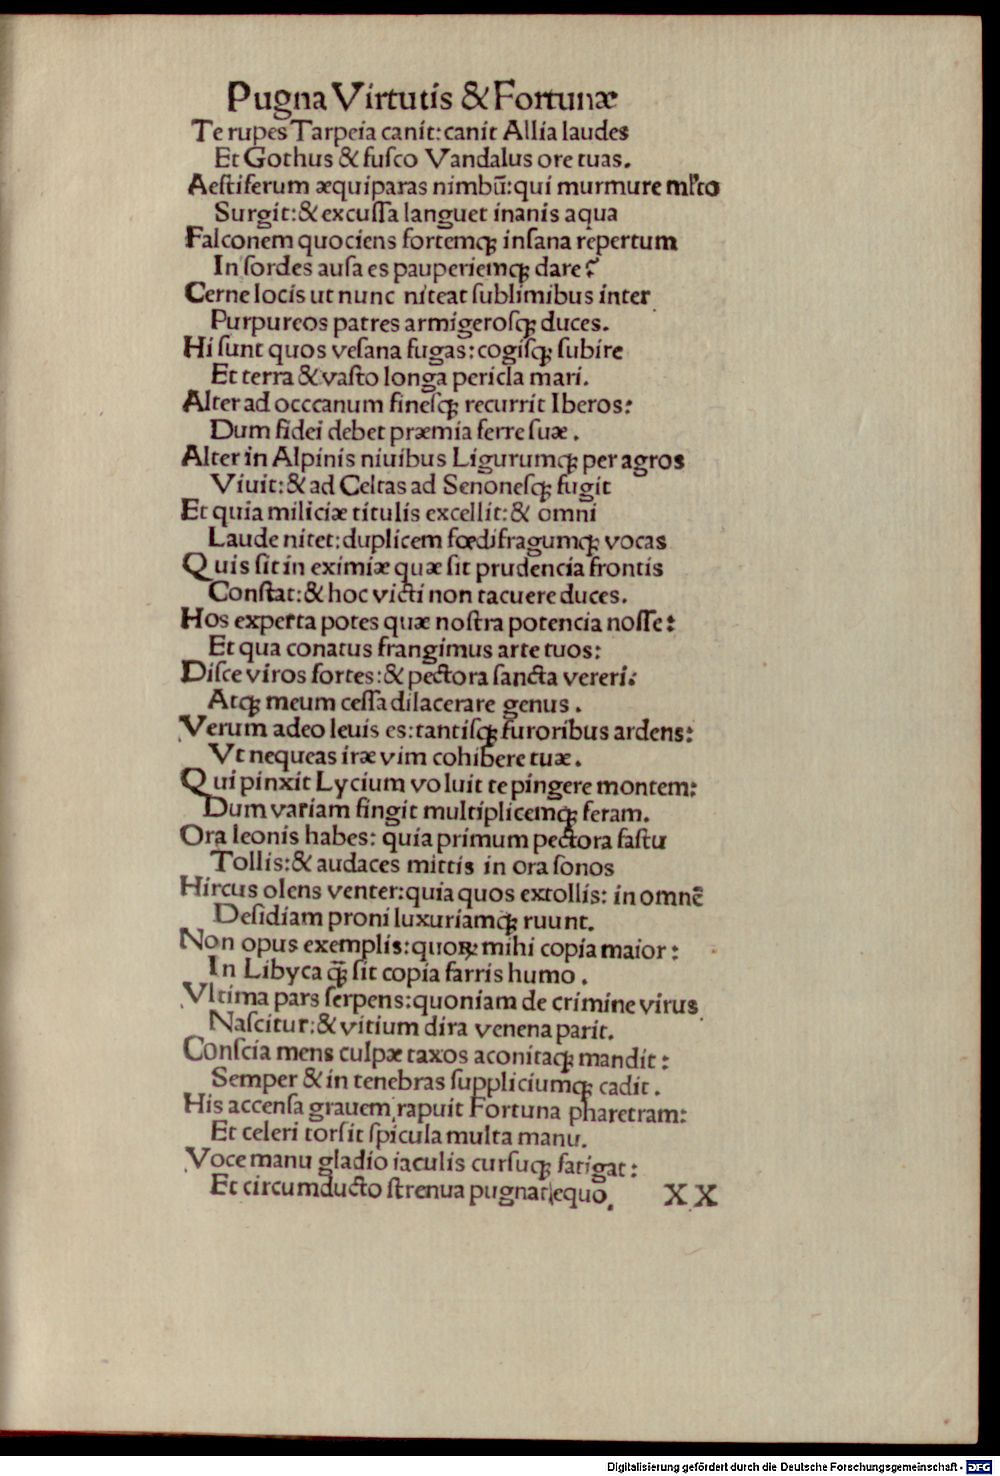 Pugna Virtutis & Fortunæ
Te rupes Tarpeia canit: canit Allia laudes
Et Gothus & fuſco Vandalus ore tuas.
Aeſtiferum æquiparas nimbū: qui murmure ml̓to
Surgit: & excuſſa languet inanis aqua
Falconem quociens fortemqꝫ inſana repertum
In ſordes auſa es pauperiemqꝫ dare?
Cerne locis ut nunc niteat ſublimibus inter
Purpureos patres armigeroſqꝫ duces.
Hi ſunt quos veſana fugas: cogiſqꝫ ſubire
Et terra & vaſto longa pericla mari.
Alter ad occcanum fineſqꝫ recurrit Iberos:
Dum fidei debet præmia ferre ſuæ.
Alter in Alpinis niuibus Ligurumqꝫ per agros
Viuit: & ad Celtas ad Senoneſqꝫ fugit
Et quia miliciæ titulis excellit: & omni
Laude nitet: duplicem fœdifragumqꝫ vocas
Quis ſit in eximiæ quæ ſit prudencia frontis
Conſtat: & hoc victi non tacuere duces.
Hos experta potes quæ noſtra potencia noſſe:
Et qua conatus frangimus arte tuos:
Diſce viros fortes: & pectora ſancta vereri:
Atqꝫ meum ceſſa dilacerare genus.
Verum adeo leuis es: tantiſqꝫ furoribus ardens:
Vt nequeas iræ vim cohibere tuæ.
Qui pinxit Lycium voluit te pingere montem:
Dum variam fingit multiplicemqꝫ feram.
Ora leonis habes: quia primum pectora faſtu
Tollis: & audaces mittis in ora ſonos
Hircus olens venter: quia quos extollis: in omnē
Deſidiam proni luxuriamqꝫ ruunt.
Non opus exemplis: quoꝝ mihi copia maior:
In Libyca qꝫ̄ ſit copia farris humo.
Vltima pars ſerpens: quoniam de crimine virus
Naſcitur: & vitium dira venena parit.
Conſcia mens culpæ taxos aconitaqꝫ mandit:
Semper & in tenebras ſuppliciumqꝫ cadit.
His accenſa grauem rapuit Fortuna pharetram:
Et celeri torſit ſpicula multa manu.
Voce manu gladio iaculis curſuqꝫ fatigat:
Et circumducto ſtrenua pugnat equo. XX
Digitalisierung gefördert durch die Deutsche Forschungsgemeinschaft - DFG